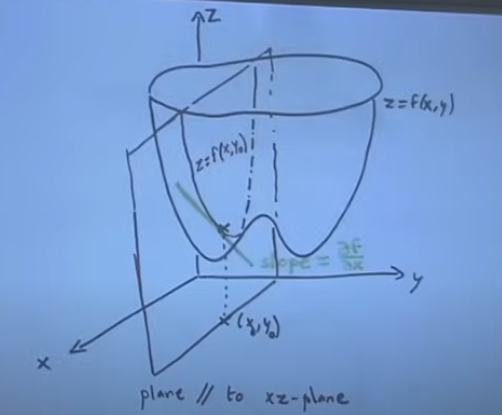 z
z=f(x,y)
z=f(x,y₀)
slope = ∂f/∂x
y
(x₀,y₀)
x
plane // to xz-plane